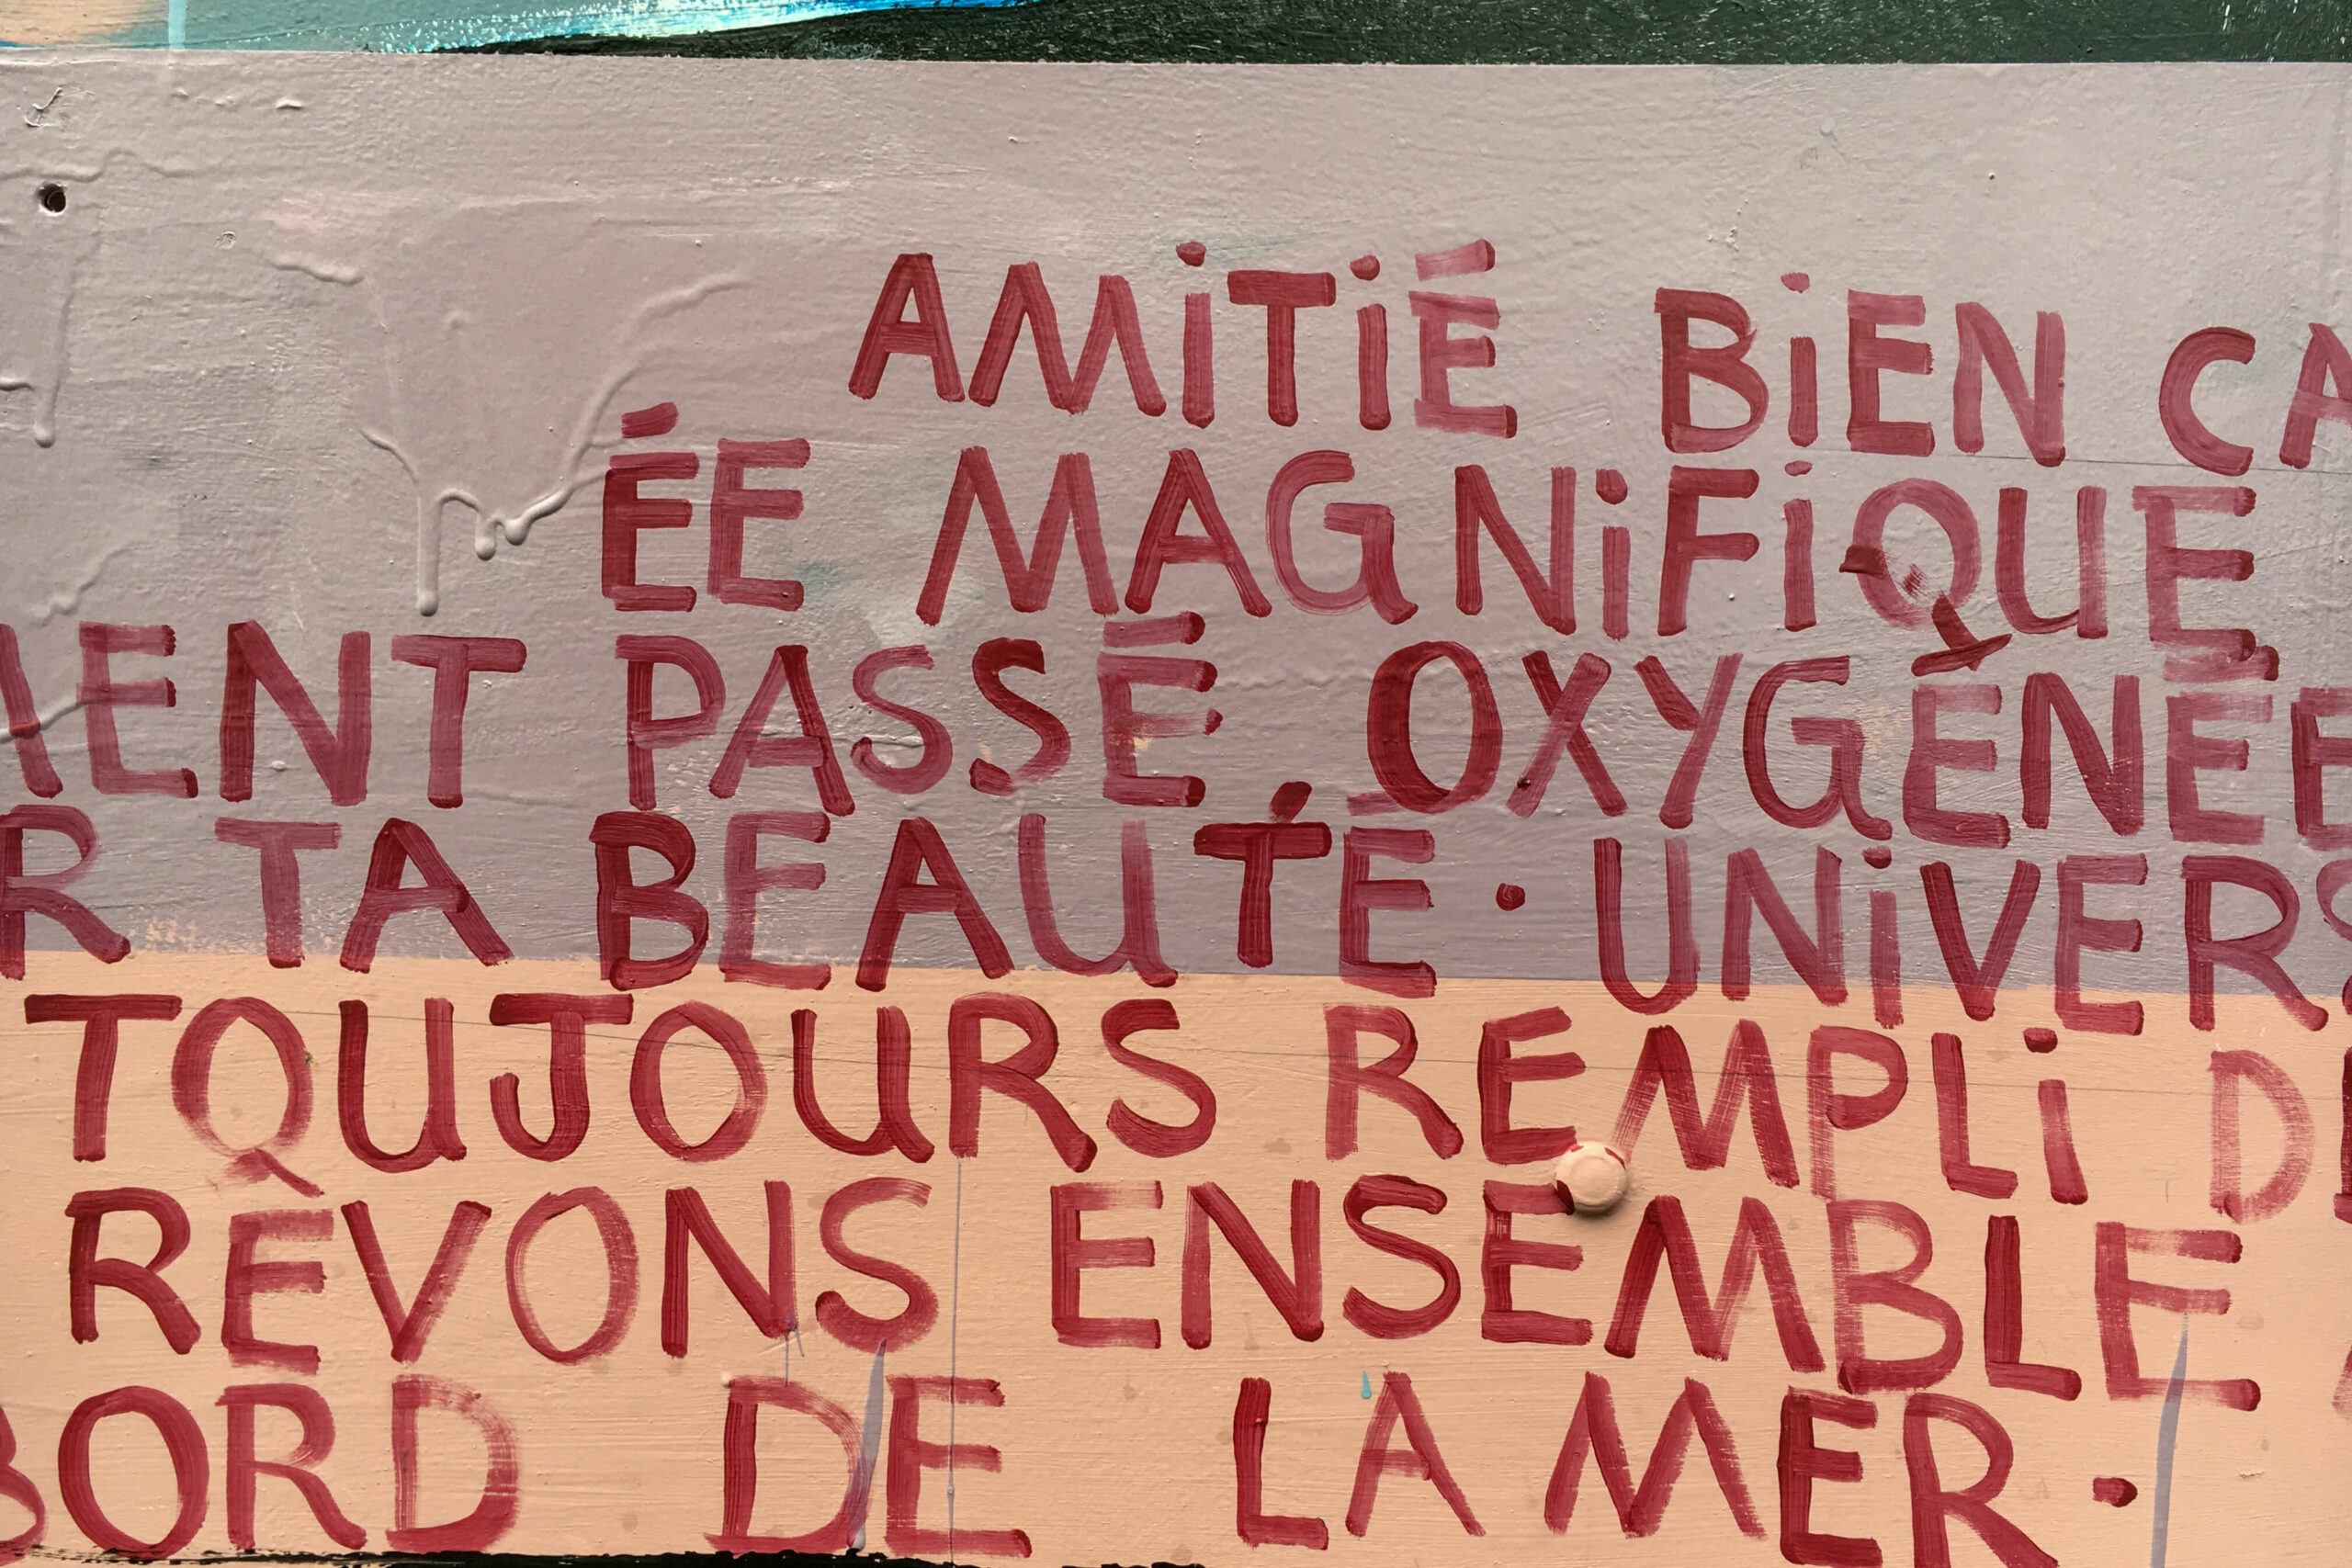 AMiTiÉ BiEN CA
ÉE MAGNiFiQUE
MENT PASSÉ OXYGÉNÉE
R TA BEAUTÉ · UNiVERS
TOUJOURS REMPLi DE
RÊVONS ENSEMBLE
BORD DE LA MER ·